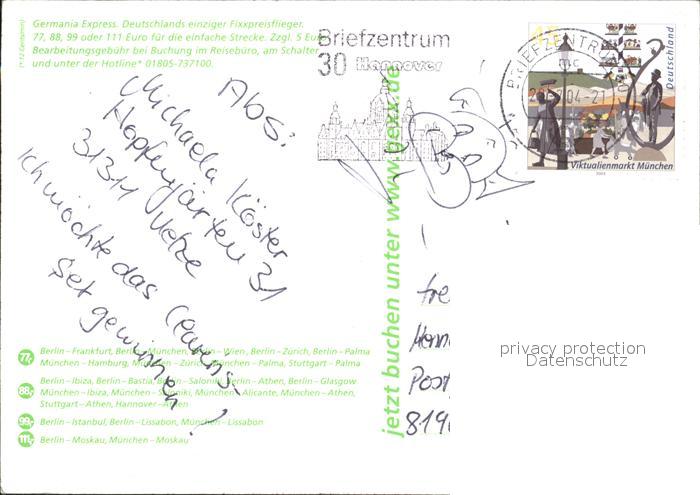 Germania Express. Deutschlands einziger Fixxpreisflieger.
77, 88, 99 oder 111 Euro für die einfache Strecke. Zzgl. 5 Euro
Bearbeitungsgebühr bei Buchung im Reisebüro, am Schalter
und unter der Hotline* 01805-737100.
(*12 Cent/min)
Briefzentrum
30 Hannover
BRIEFZENTRUM
mc
04-21
45
Deutschland
Viktualienmarkt München
2003
Abs:
Michaela Köster
Hopfengärten 31
31311 Uetze
Ich möchte das
Set gewinnen!
jetzt buchen unter www.gexx.de
77,- Berlin – Frankfurt, Berlin – München, Berlin – Wien, Berlin – Zürich, Berlin – Palma
München – Hamburg, München – Zürich, München – Palma, Stuttgart – Palma
88,- Berlin – Ibiza, Berlin – Bastia, Berlin – Saloniki, Berlin – Athen, Berlin – Glasgow
München – Ibiza, München – Saloniki, München – Alicante, München – Athen,
Stuttgart – Athen, Hannover – Athen
99,- Berlin – Istanbul, Berlin – Lissabon, München – Lissabon
111,- Berlin – Moskau, München – Moskau
Post
819
privacy protection
Datenschutz